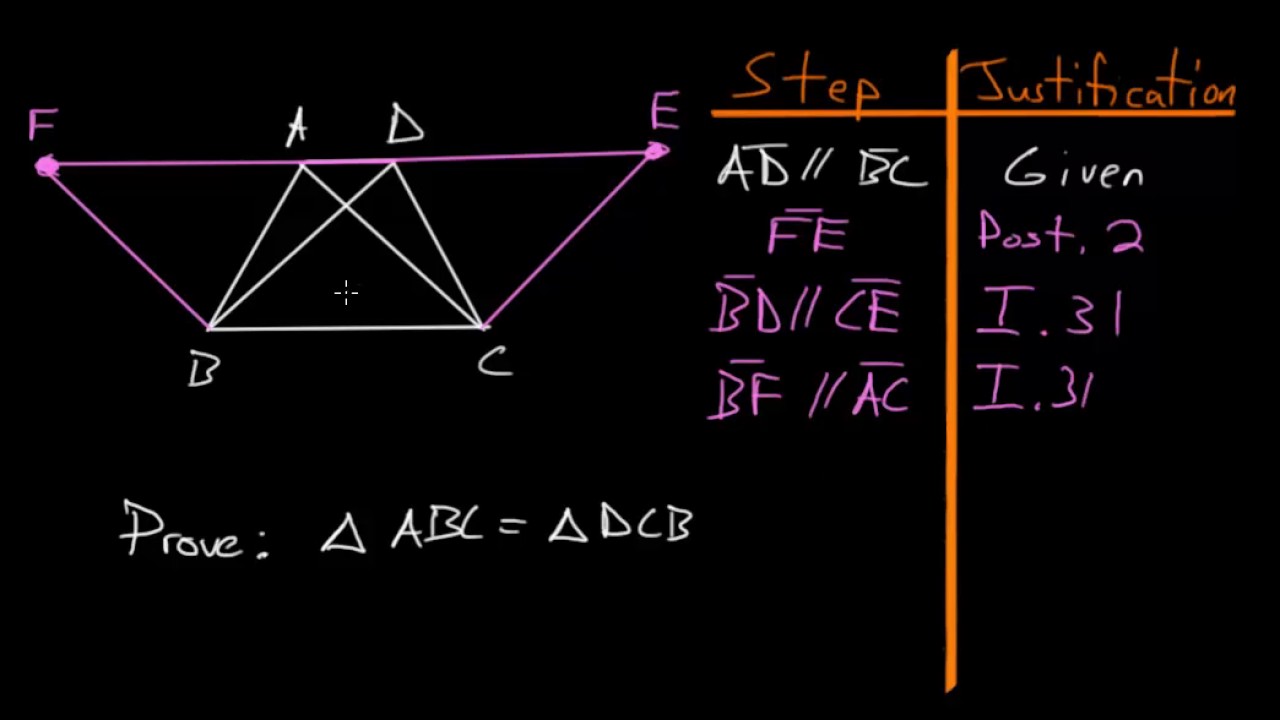 F A D E
B C
Prove: △ ABC = △ DCB
Step Justification
A̅D̅ // B̅C̅ Given
F̅E̅ Post. 2
B̅D̅ // C̅E̅ I.31
B̅F̅ // A̅C̅ I.31